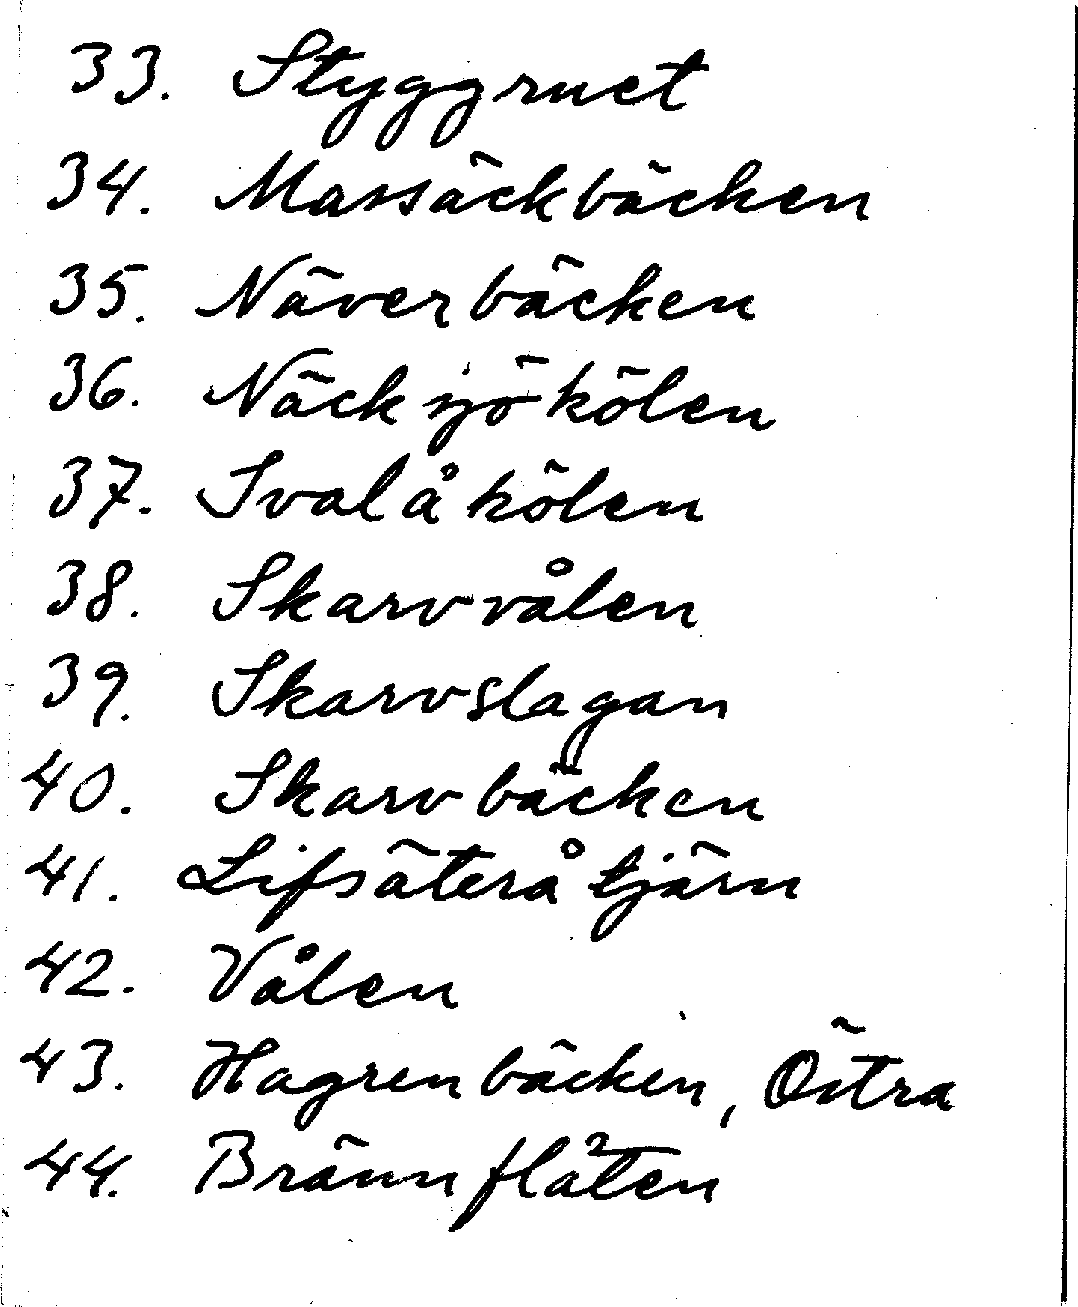 33. Styggruet
34. Massäckbäcken
35. Näverbäcken
36. Näcksjökölen
37. Svalåkölen
38. Skarvvålen
39. Skarvslagan
40. Skarvbäcken
41. Lifsäteråtjärn
42. Vålen
43. Hagrenbäcken, Östra
44. Brännflåten